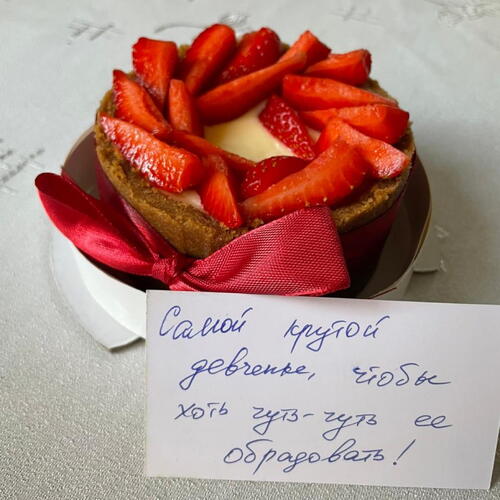 Самой крутой
девченке, чтобы
хоть чуть-чуть ее
обрадовать!